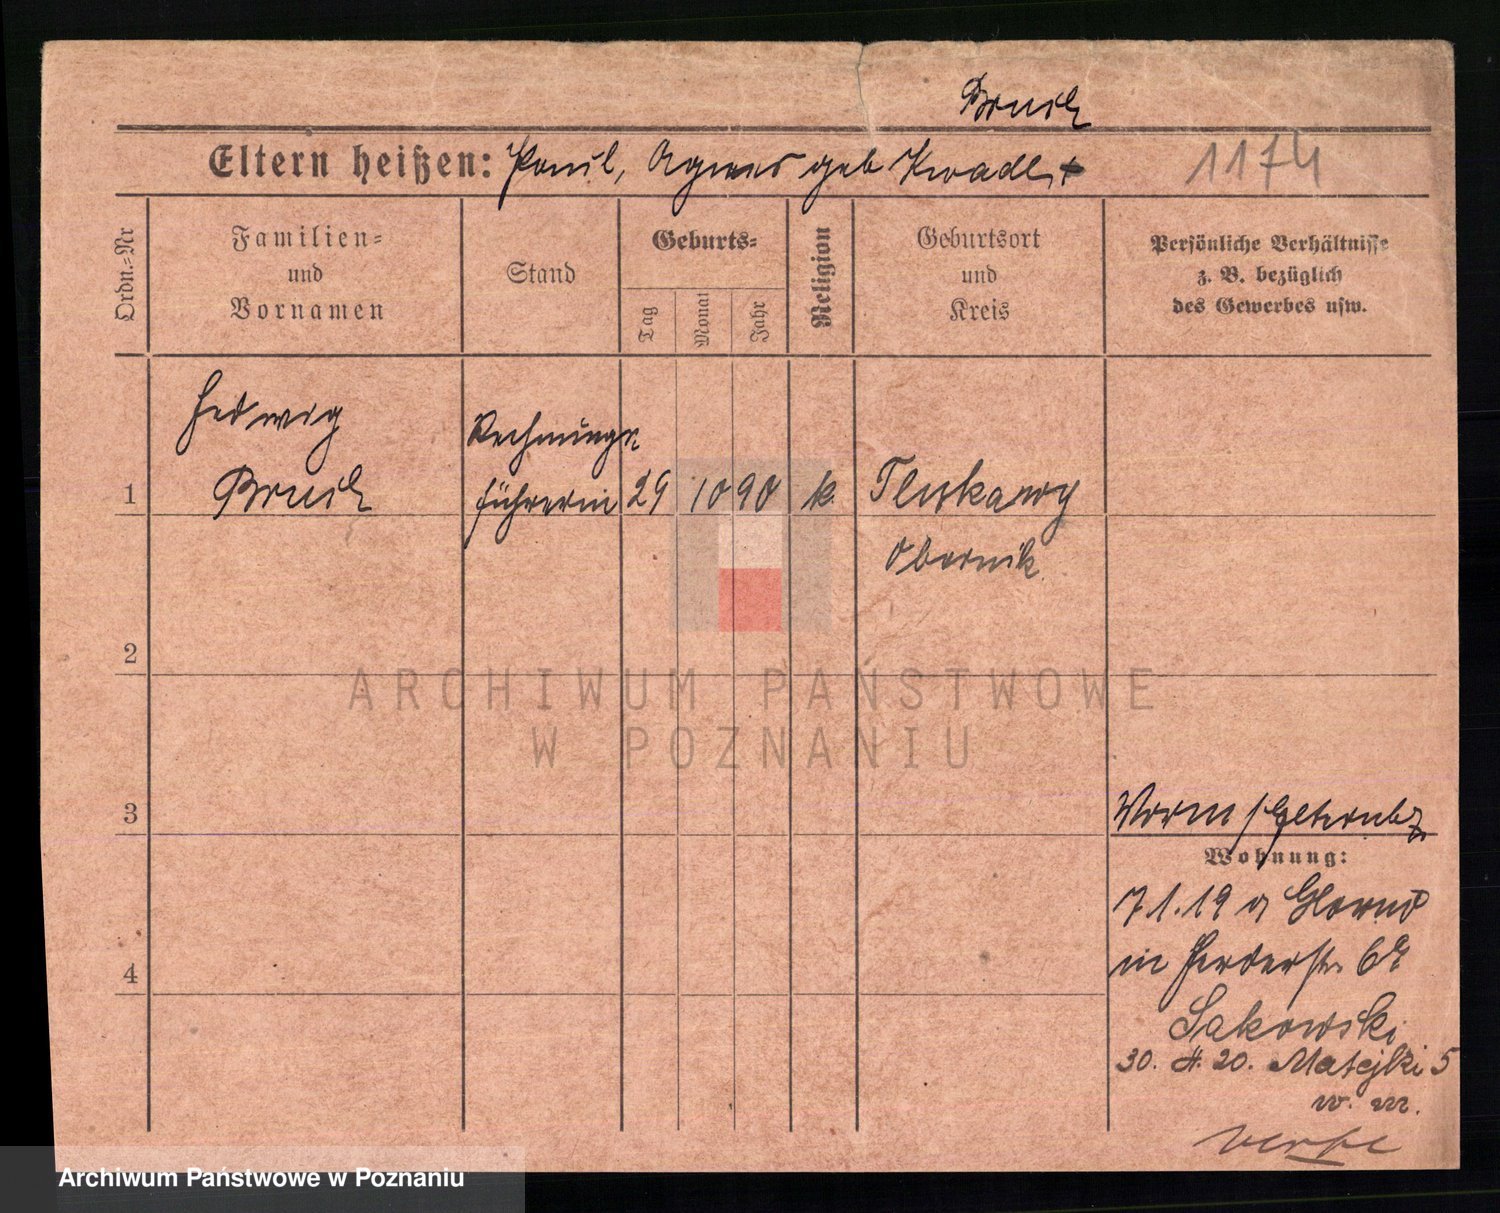 Bruck
Eltern heißen: Paul, Agnes geb
1174
Ordn.=Nr
Familien=
und
Vornamen
Stand
Geburts=
Tag
Monat
Jahr
Religion
Geburtsort
und
Kreis
Persönliche Verhältnisse
z. B. bezüglich
des Gewerbes usw.
Hedwig
Rechnungs
1
führerin
29
10
90
k.
Obornik
2
3
Wohnung:
7.1.19 a Glowno
in Herderstr.
4
Sakowski
30. 4. 20. Matejki 5
w. m.
ARCHIWUM PAŃSTWOWE
W POZNANIU
Archiwum Państwowe w Poznaniu